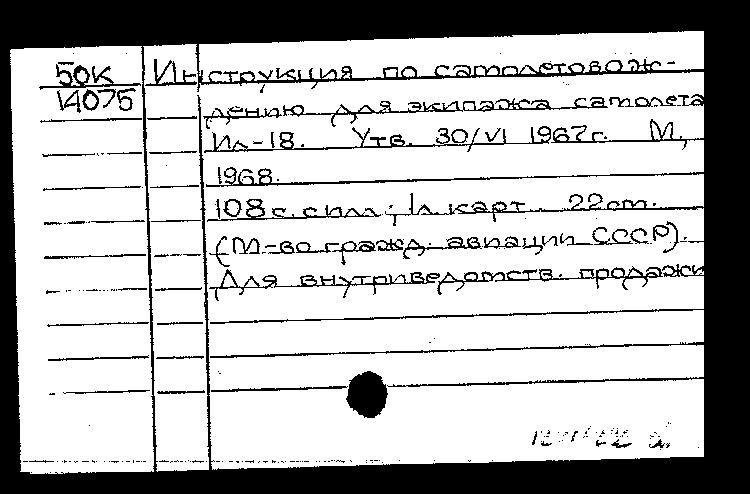 50К Инструкция по самолетовож-
14075 дению для экипажа самолета
Ил-18. Утв. 30/VI 1967г. М,
1968.
108 с. с илл; 1 л. карт. 22 cm.
(М-во гражд. авиации СССР).
Для внутриведомств. продажи